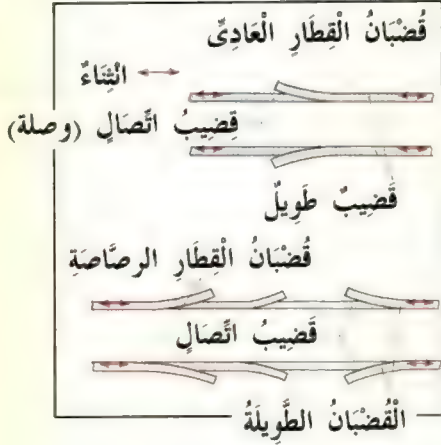 قُضْبَانُ الْقِطَارِ الْعَادِيِّ
انْثِنَاءٌ
قَضِيبُ اتِّصَالٍ (وصلة)
قَضِيبٌ طَوِيلٌ
قُضْبَانُ الْقِطَارِ الرصَّاصَةِ
قَضِيبُ اتِّصَالٍ
الْقُضْبَانُ الطَّوِيلَةُ